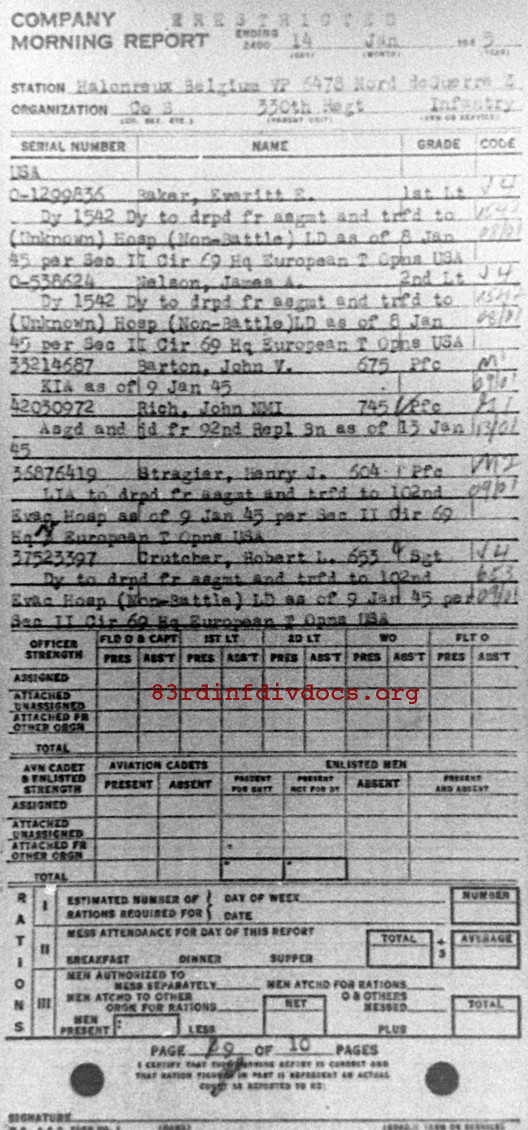 COMPANY RESTRICTED
MORNING REPORT ENDING 2400 14 Jan 194 5
(DAY) (MONTH) (YEAR)
STATION Halonreux Belgium VP 6478 Nord deGuerre Z
ORGANIZATION Co B 330th Regt Infantry
(CO. BRY. ETC.) (PARENT UNIT) (ARM OR SERVICE)
SERIAL NUMBER NAME GRADE CODE
USA
O-1299836 Baker, Everitt E. 1st Lt J4
Dy 1542 Dy to drpd fr asgmt and trfd to 1542
(Unknown) Hosp (Non-Battle) LD as of 8 Jan 08/01
45 per Sec II Cir 69 Hq European T Opns USA
O-538624 Nelson, James A. 2nd Lt J4
Dy 1542 Dy to drpd fr asgmt and trfd to 1542
(Unknown) Hosp (Non-Battle)LD as of 8 Jan 08/01
45 per Sec II Cir 69 Hq European T Opns USA
33214687 Barton, John V. 675 Pfc M1
KIA as of 9 Jan 45 09/01
42030972 Rich, John NMI 745 Pfc
Asgd and jd fr 92nd Repl Bn as of 13 Jan 13/01
45
36876419 Stragier, Henry J. 604 Pfc M2
LIA to drpd fr asgmt and trfd to 102nd 09/01
Evac Hosp as of 9 Jan 45 per Sec II Cir 69
Hq European T Opns USA
37523397 Crutcher, Robert L. 653 Sgt J4
Dy to drpd fr asgmt and trfd to 102nd 653
Evac Hosp (Non-Battle) LD as of 9 Jan 45 per 09/01
Sec II Cir 69 Hq European T Opns USA
OFFICER STRENGTH FLD O & CAPT 1ST LT 2D LT WO FLT O
PRES ABS'T PRES ABS'T PRES ABS'T PRES ABS'T PRES ABS'T
ASSIGNED
83rdinfdivdocs.org
ATTACHED UNASSIGNED
ATTACHED FR OTHER ORGN
TOTAL
AVN CADET & ENLISTED STRENGTH AVIATION CADETS ENLISTED MEN
PRESENT ABSENT PRESENT FOR DUTY PRESENT NOT FOR DY ABSENT PRESENT AND ABSENT
ASSIGNED
ATTACHED UNASSIGNED
ATTACHED FR OTHER ORGN
TOTAL
RATIONS
I ESTIMATED NUMBER OF RATIONS REQUIRED FOR { DAY OF WEEK NUMBER
DATE
II MESS ATTENDANCE FOR DAY OF THIS REPORT TOTAL ÷ 3 AVERAGE
BREAKFAST DINNER SUPPER
III MEN AUTHORIZED TO MESS SEPARATELY MEN ATCHD FOR RATIONS
MEN ATCHD TO OTHER ORGN FOR RATIONS NET O & OTHERS MESSED TOTAL
MEN PRESENT LESS PLUS
PAGE 9 OF 10 PAGES
I CERTIFY THAT THIS MORNING REPORT IS CORRECT AND
THAT RATION FIGURES IN PART III REPRESENT AN ACTUAL
COUNT AS REPORTED TO ME:
SIGNATURE